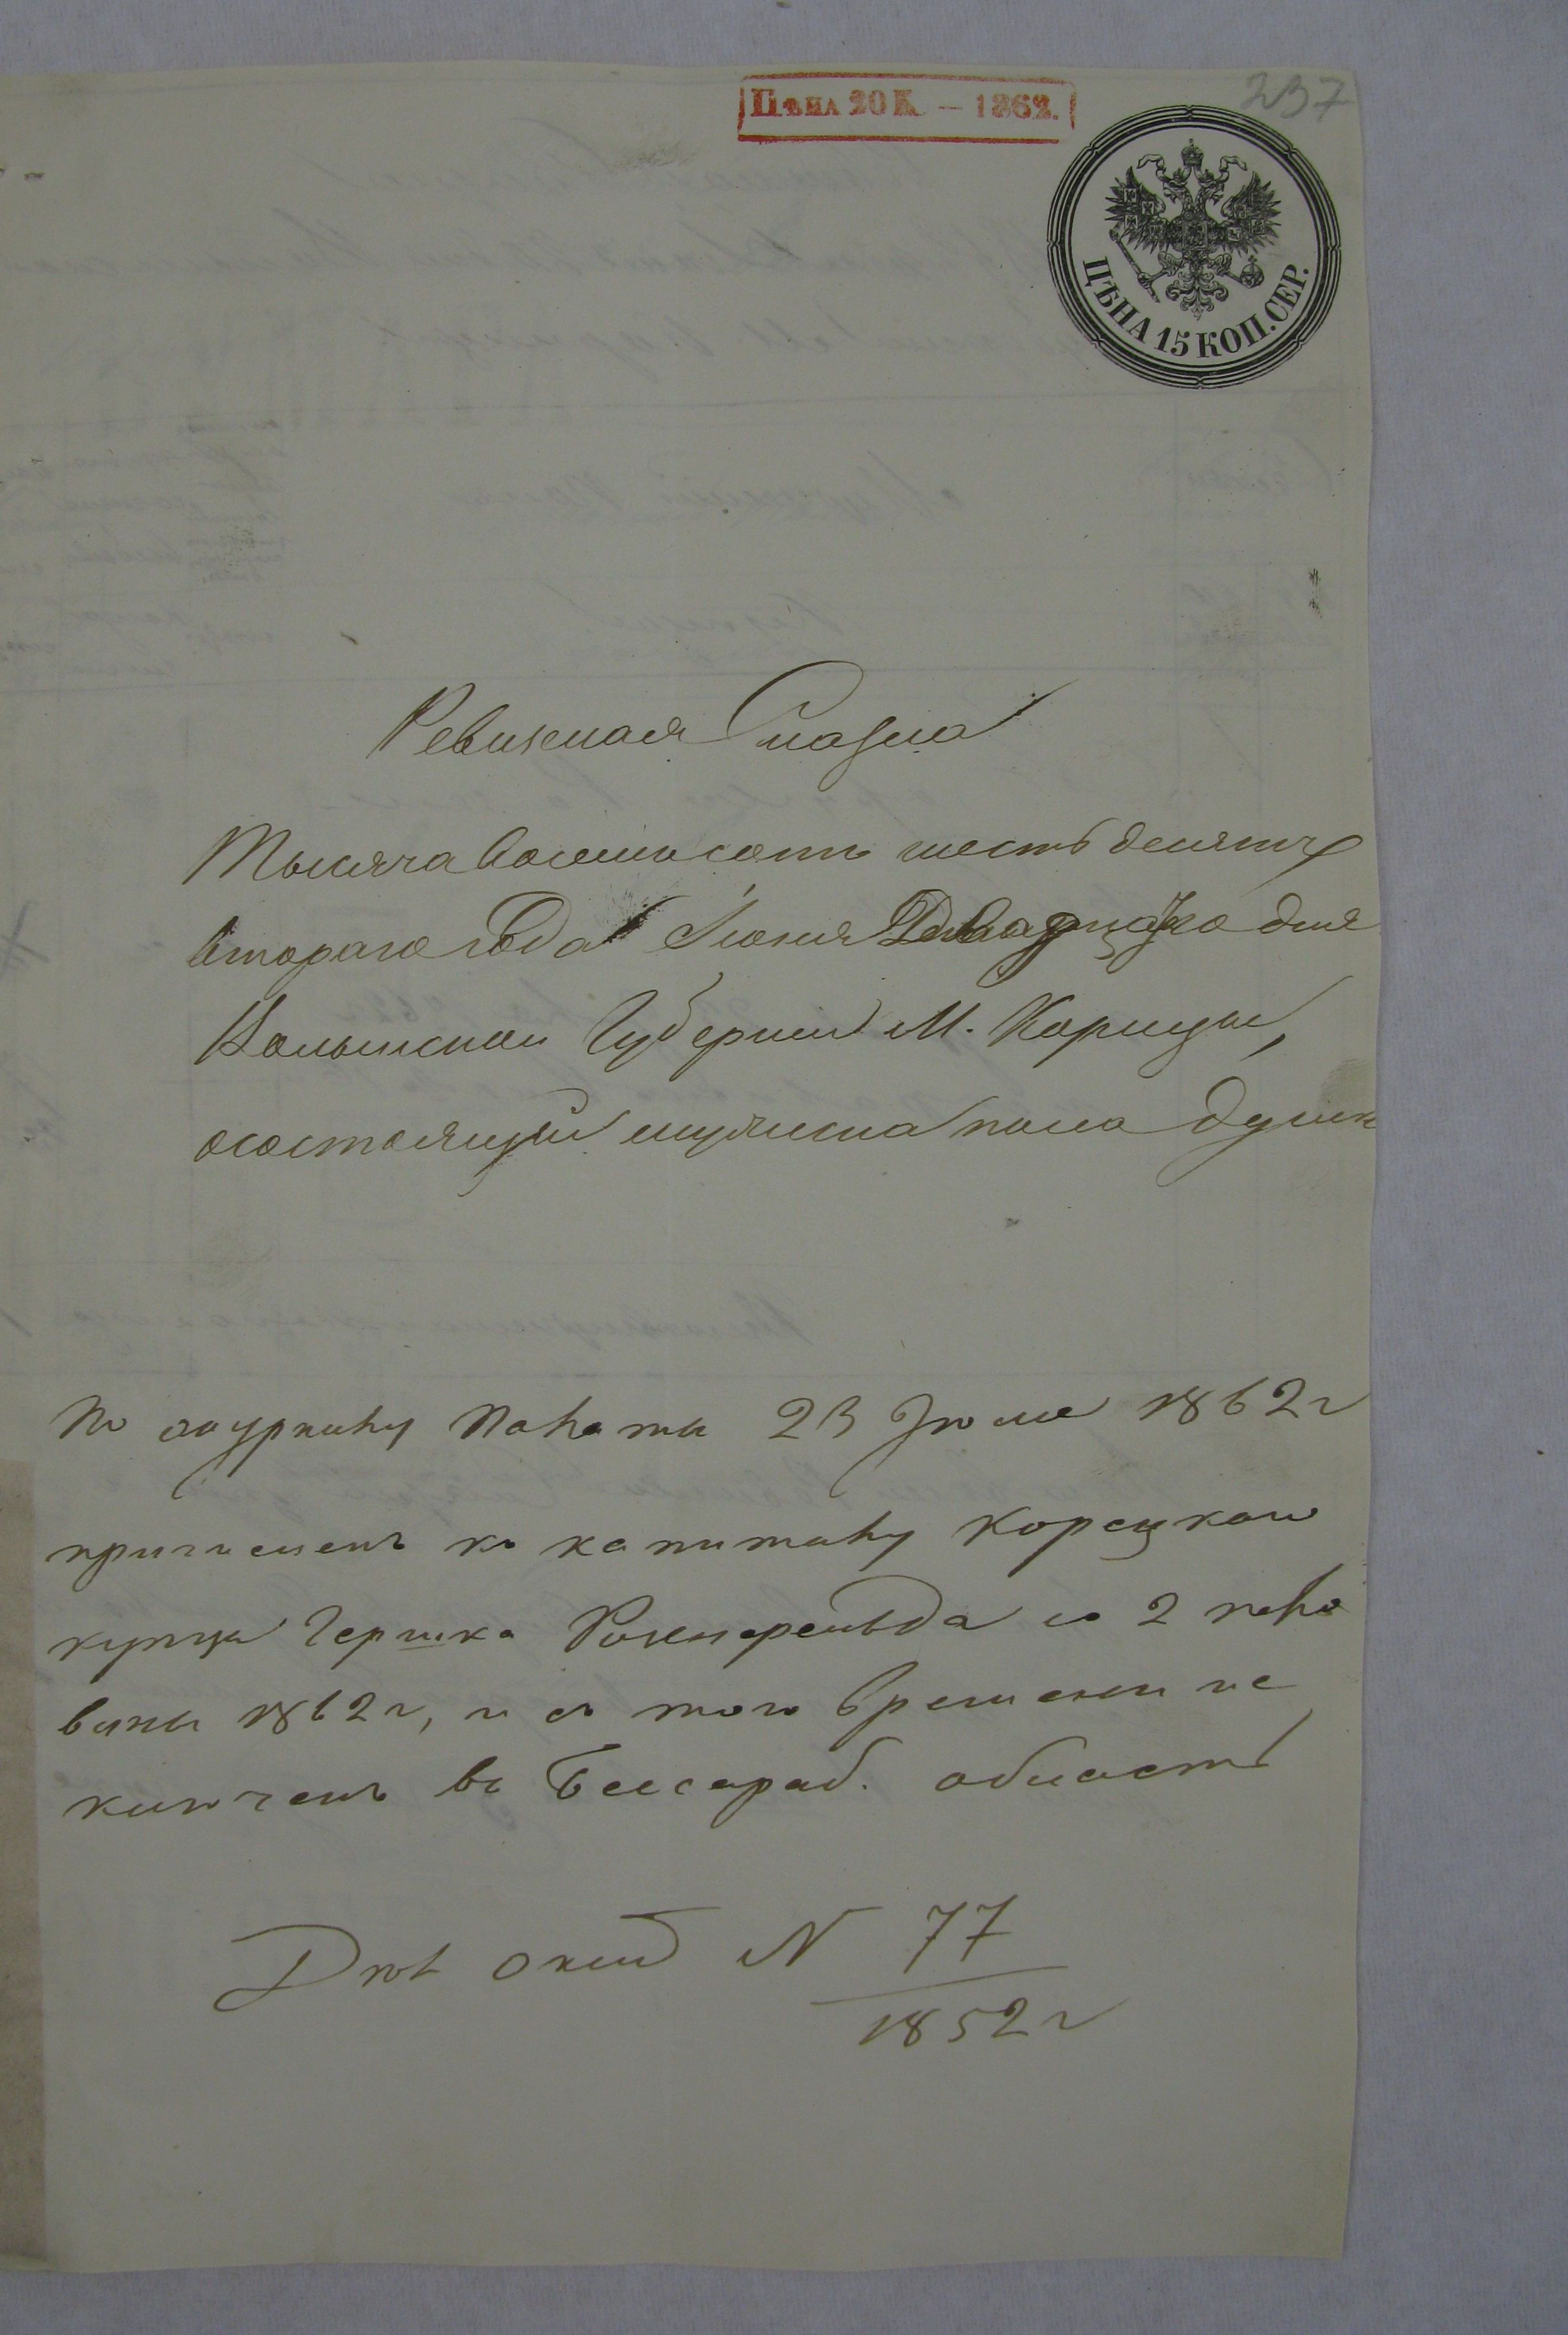 237
Цѣна 20 К. — 1862.
ЦѢНА 15 КОП. СЕР.
Ревизская Сказка
Тысяча восемьсотъ шестьдесятъ
втораго года Іюня Двадцатаго дня
Волынской Губерніи М. Корицы,
состоящій мужеска пола душъ
По журналу Палаты 23 Іюля 1862 г
причисленъ къ капиталу Корецкаго
купца Гершка Розенфельда со 2 поло
вины 1862 г, и съ того времени ис
ключенъ въ Бессараб. область
Дѣл окла N 77
1852 г